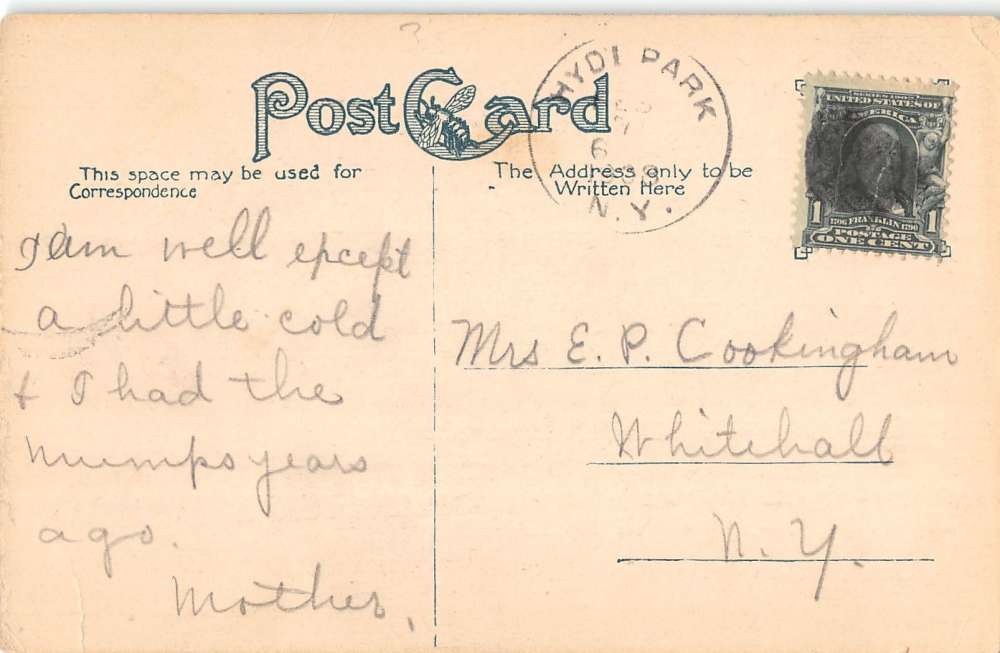 Post Card
This space may be used for
Correspondence
The Address only to be
Written Here
HYDE PARK
6
N.Y.
SERIES 1902
UNITED STATES OF
AMERICA
1 1706 FRANKLIN 1790 1
POSTAGE
ONE CENT
I am well except
a little cold
+ I had the
mumps years
ago.
Mother,
Mrs E. P. Cookingham
Whitehall
N. Y.